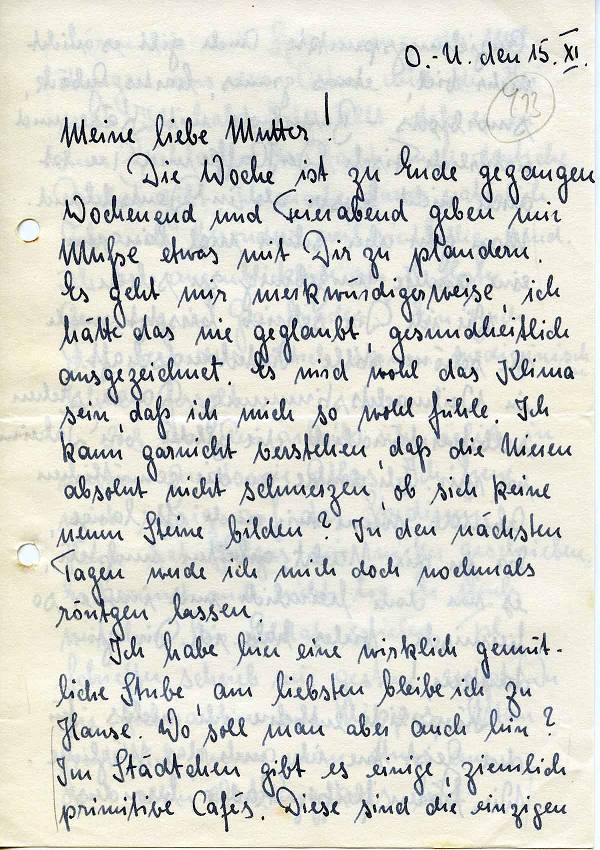 O.-U. den 15. XI.
493
Meine liebe Mutter!
Die Woche ist zu Ende gegangen
Wochenend und Feierabend geben mir
Muße etwas mit Dir zu plaudern.
Es geht mir merkwürdigerweise, ich
hätte das nie geglaubt, gesundheitlich
ausgezeichnet. Es wird wohl das Klima
sein, daß ich mich so wohl fühle. Ich
kann garnicht verstehen, daß die Nieren
absolut nicht schmerzen, ob sich keine
neuen Steine bilden? In den nächsten
Tagen werde ich mich doch nochmals
röntgen lassen.
Ich habe hier eine wirklich gemüt-
liche Stube, am liebsten bleibe ich zu
Hause. Wo soll man aber auch hin?
Im Städtchen gibt es einige ziemlich
primitive Cafés. Diese sind die einzigen